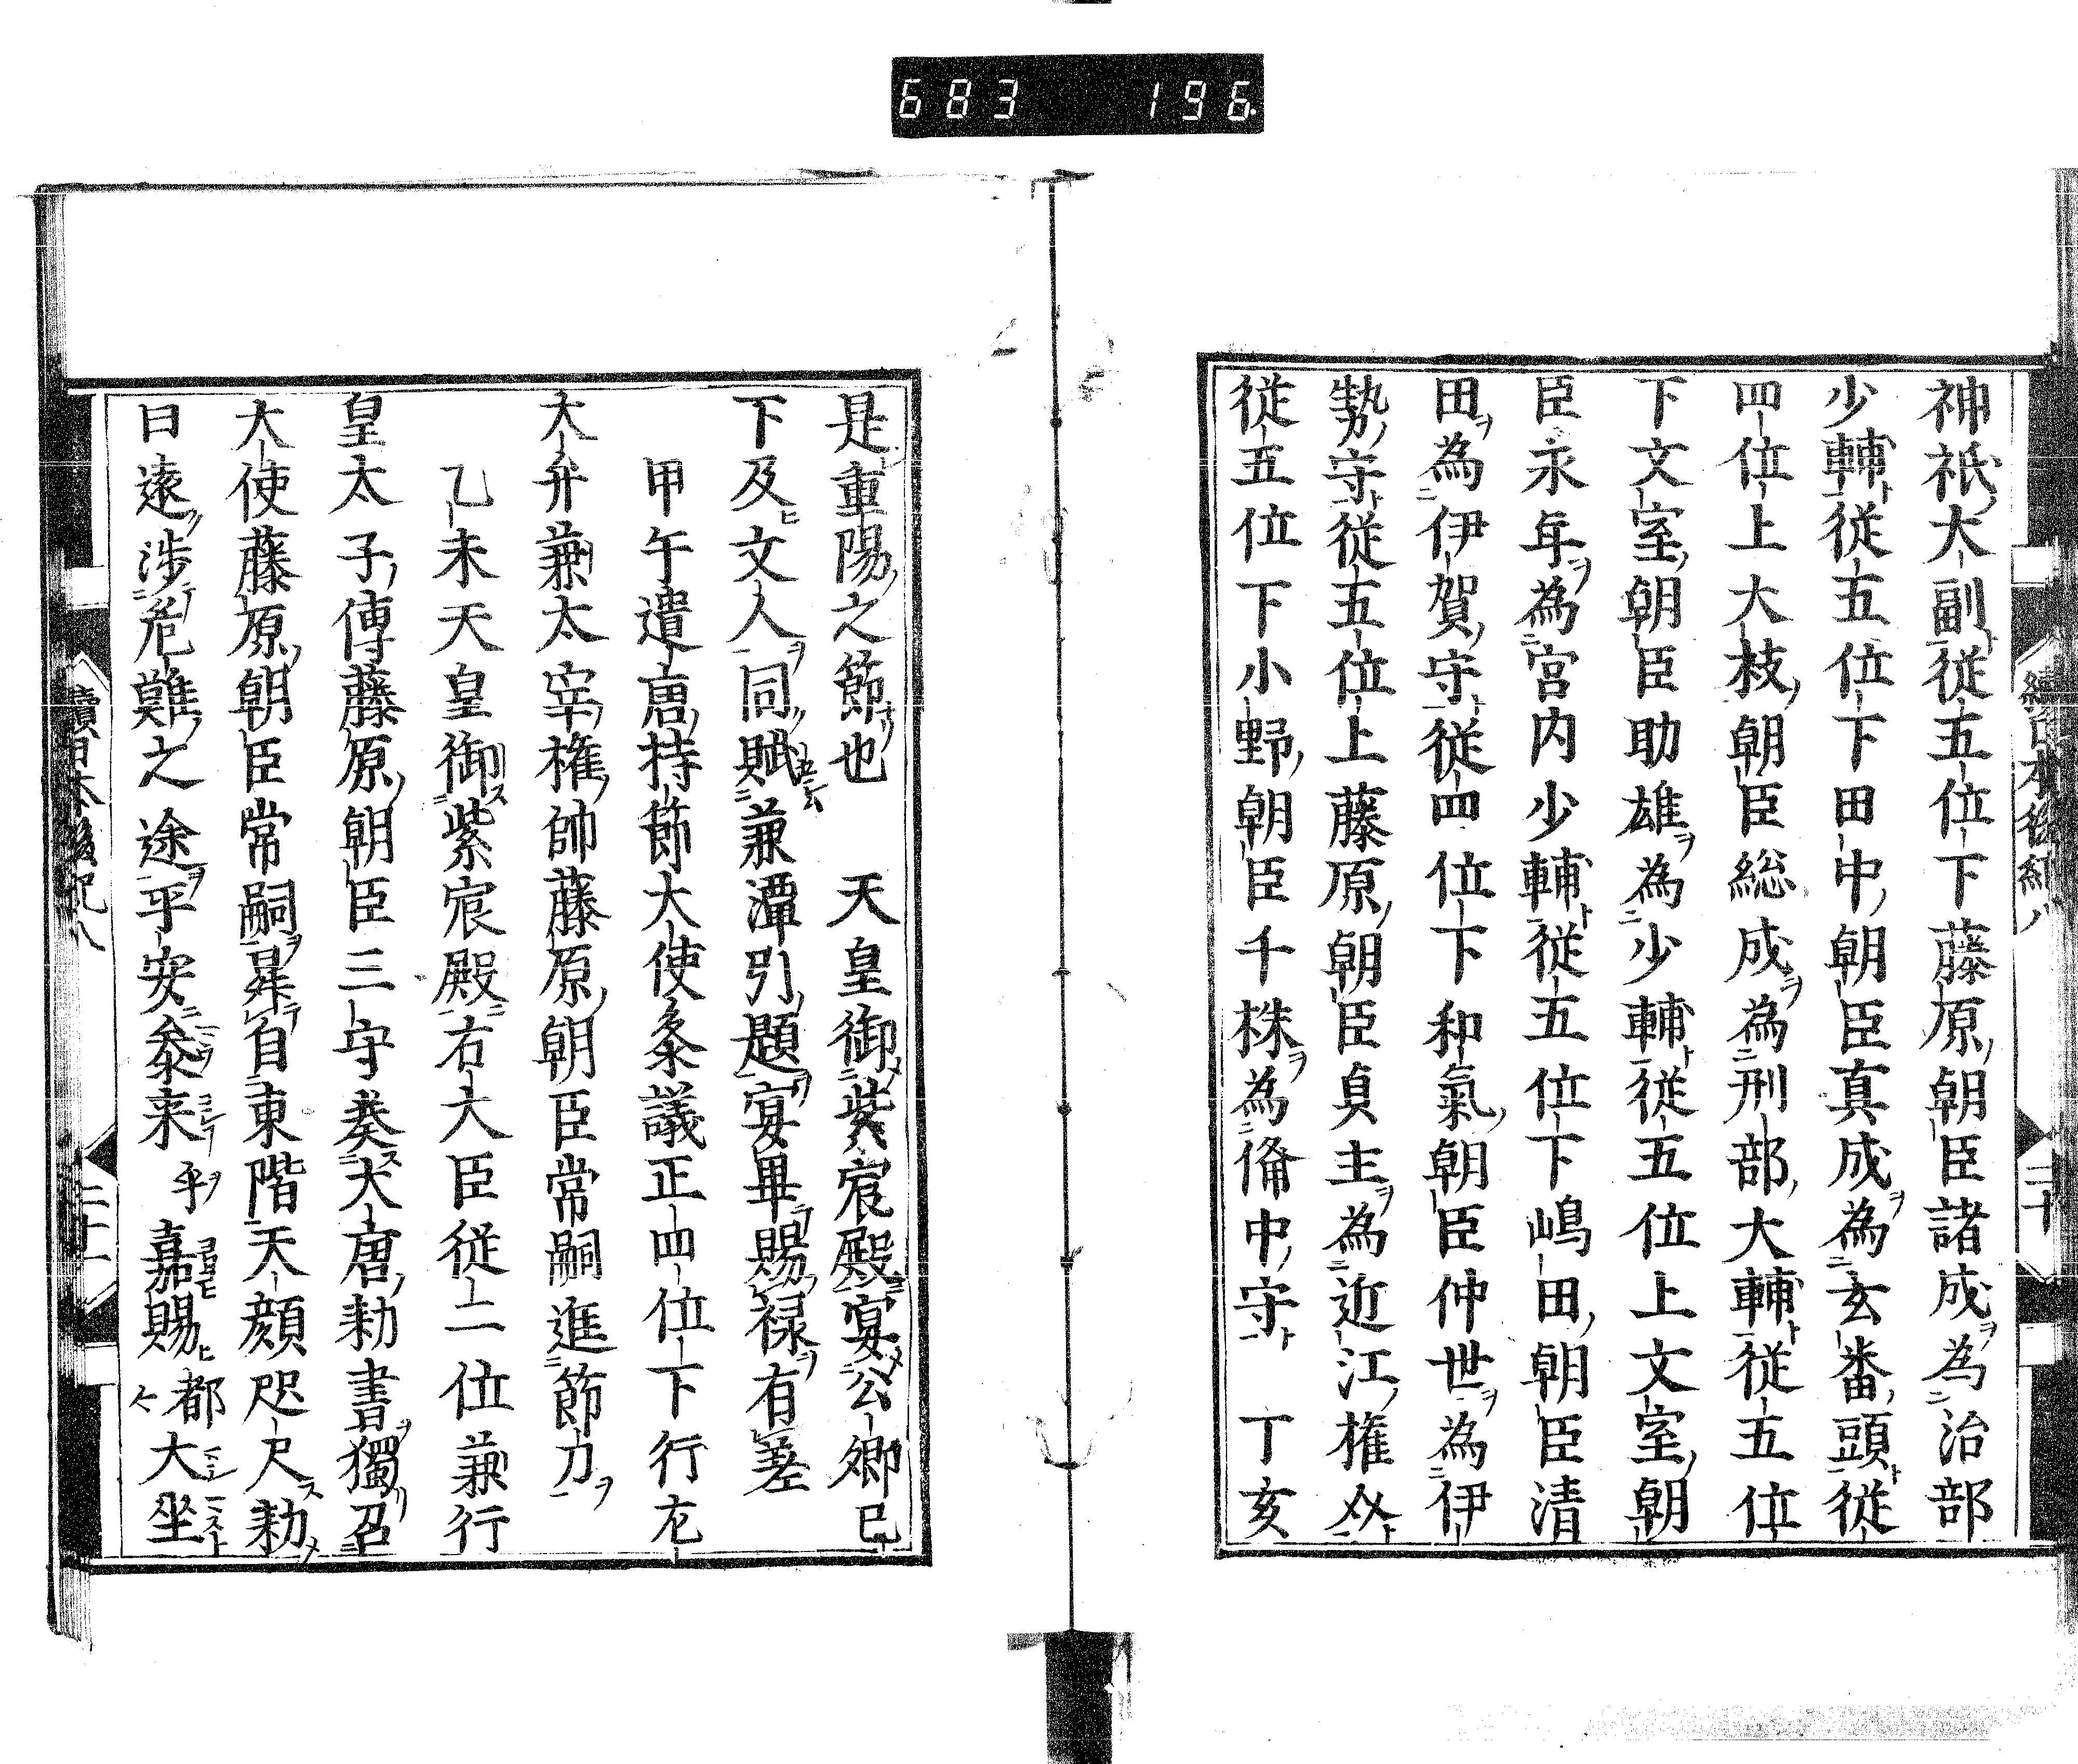 683 196
續日本後紀八
二十
神祇大副從五位下藤原朝臣諸成為治部
少輔從五位下田中朝臣真成為玄番頭從
四位上大枝朝臣総成為刑部大輔從五位
下文室朝臣助雄為少輔從五位上文室朝
臣永年為宮内少輔從五位下嶋田朝臣清
田為伊賀守從四位下和氣朝臣仲世為伊
勢守從五位上藤原朝臣貞主為近江權
從五位下小野朝臣千株為俻中守 丁亥
是重陽之節也 天皇御紫宸殿宴公卿已
下及文人同賦兼潭引題宴畢賜禄有差
甲午遣唐持節大使叅議正四位下行左
大弁兼太宰権帥藤原朝臣常嗣進節刀
乙未天皇御紫宸殿右大臣從二位兼行
皇太子傳藤原朝臣三守奏大唐勅書獨召
大使藤原朝臣常嗣昇自東階天顔咫尺勅
曰遠渉危難之途平安叅来乎嘉賜都大坐
續日本後紀八
二十一